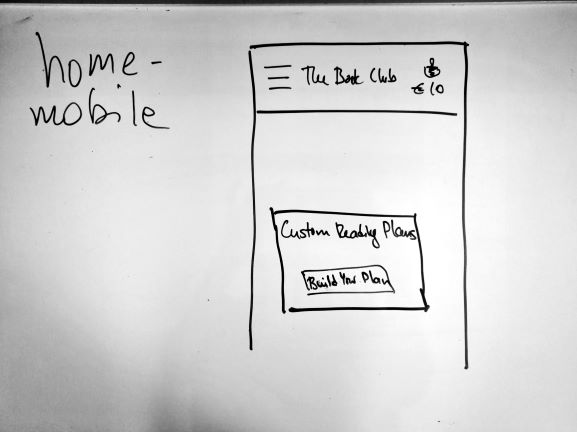 home-
mobile
The Book Club
€10
Custom Reading Plans
Build Your Plan